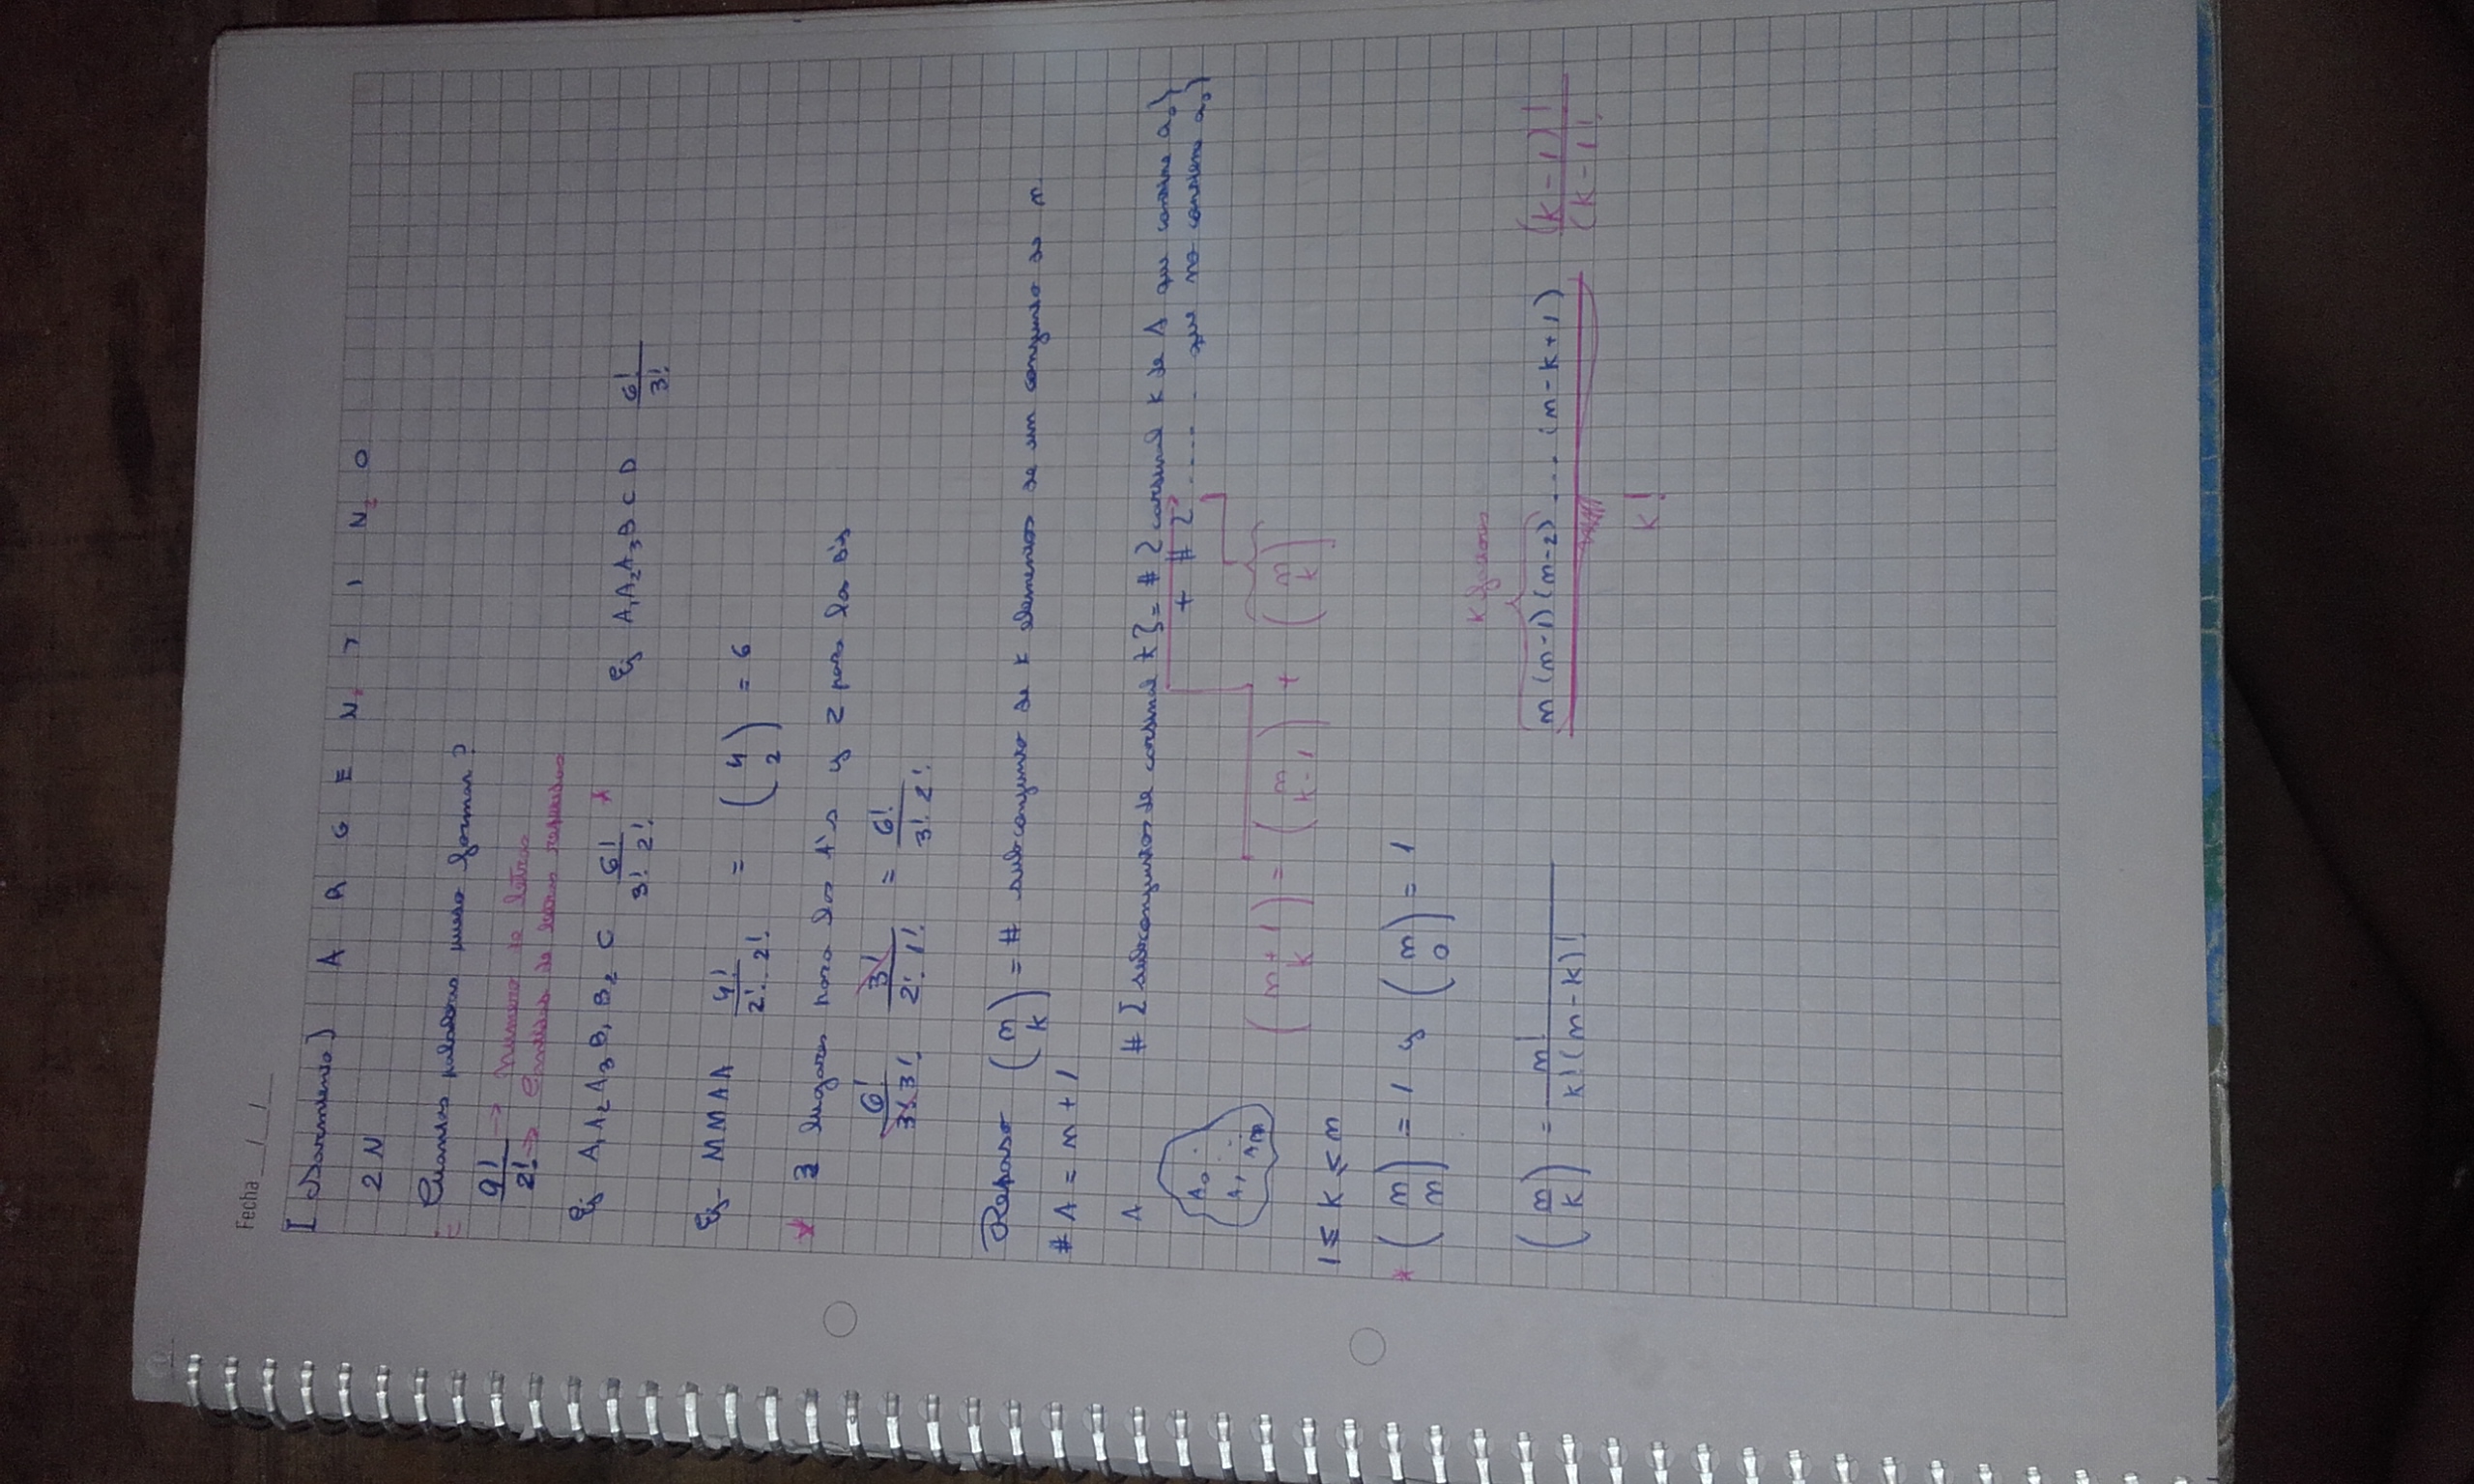 Fecha __/__/__
[Sarmiento] A R G E N₁ T I N₂ O
2 N
Cuantas palabras puedo formar?
9! → Numero de letras
2! → Cantidad de letras repetidas
Ej A₁A₂A₃B₁B₂C 6!/3! 2! * Ej A₁A₂A₃BCD 6!/3!
Ej- MMAA 4!/2! 2! = (4 2) = 6
* 3 lugares para las A's y 2 para la B's
6!/3! 3! 3!/2! 1! = 6!/3! 2!
Repaso (n k) = # subconjunto de k elementos de un conjunto de n
# A = n + 1
A # {subconjuntos de cardinal k} = # {cardinal k de A que contiene a₀}
+ # {..... que no contiene a₀}
A₀
A₁ Aₘ
(n+1 k) = (n k-1) + (n k)
1 ≤ k ≤ n
* (n n) = 1 y (n 0) = 1
k factores
(n k) = n!/k!(n-k)! n(n-1)(n-2)...(n-k+1) (k-1)!/(k-1!
k!